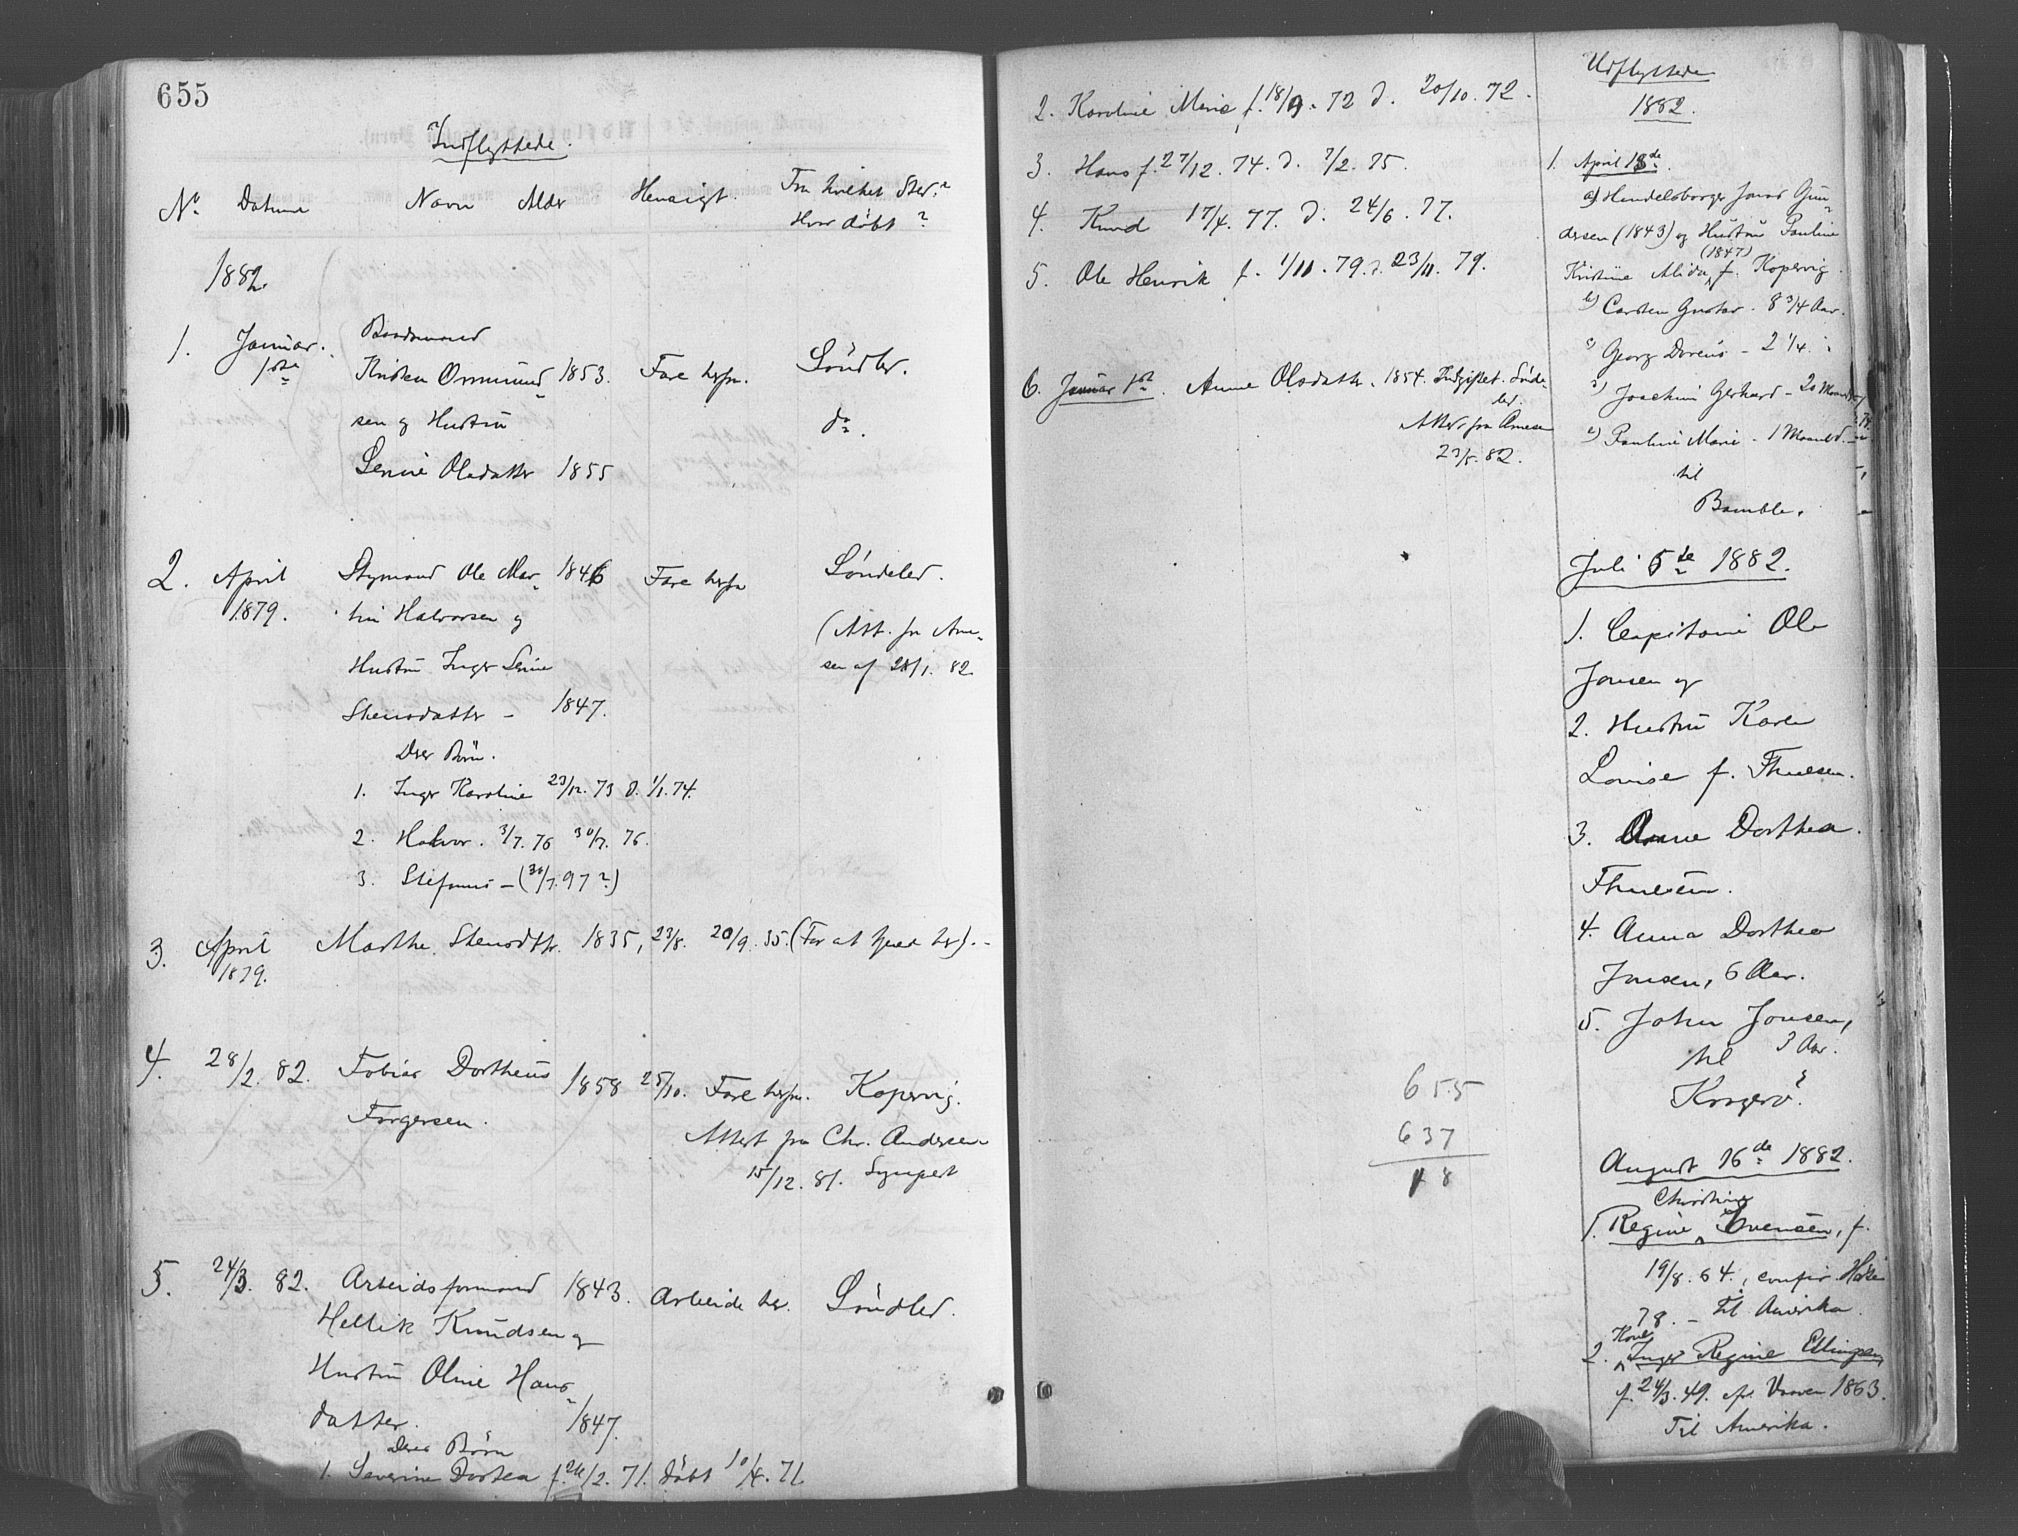 655
Indflyttede.
No Datum Navn Alder Hensigt. Fra hvilket Sted?
Hvor døbt?
1882.
1. Januar. Baadsmand
1ste Kristen Osmund- 1853. Fare herfra. Søndled.
sen og Hustru do.
Serine Olsdatter 1855
2. April Styrmand Ole Mar- 1846 Fare herfra Søndeled.
1879. tin Halvorsen og (Att. fra Arne-
Hustru Inger Serine sen af 28/1. 82.
Stensdatter - 1847.
Deres Børn.
1. Inger Karoline 23/12. 73 d. 1/1. 74.
2. Halvor. 3/7. 76 30/7. 76.
3. Stefanus - (30/7. 97?)
3. April Marthe Stensdtr. 1835, 23/8. 20/9. 35. (For at tjene her). -
1879.
4. 28/2. 82. Tobias Dortheus 1858 25/10. Fare herfra. Kopervig.
Torgersen. Attest fra Chr. Andersen
15/12. 81.
5. 24/3. 82. Arbeidsformand 1843. Arbeide her. Søndled.
Hellik Knudsen og
Hustru Oline Hans-
datter. 1847.
Deres Børn
1. Severine Dortea f. 26/2. 71. døbt 10/4. 71.
2. Karoline Marie f. 18/9. 72 d. 20/10. 72.
3. Hans f. 27/12. 74. d. 7/2. 75.
4. Knud 17/4. 77. d. 24/6. 77.
5. Ole Henrik f. 1/11. 79. d. 23/11. 79.
6. Januar 1ste. Anne Olsdatter. 1854. Indgiftet. Sønde-
led.
Attest fra Arnesen
23/5. 82.
655
637
18
Udflyttede
1882.
1. April 13de.
a) Handelsborger Jonas Gun-
dersen (1843) og Hustru Pauline
(1847)
Kristine Alida, f. Kopervig.
b) Carsten Gustav. 8 3/4 Aar.
c) Georg Doreus - 2 1/4.
d) Joachim Gerhard - 20 Maaneder
e) Pauline Marie - 1 Maaned.
til
Bamble.
Juli 5te 1882.
1. Capitain Ole
Jonsen og
2. Hustru Karen
Lovise f. Thuesen.
3. Anne Dorthea
Thuesen.
4. Anna Dorthea
Jonsen, 6 Aar.
5. John Jonsen,
3 Aar.
til
Kragerø.
August 16de 1882.
Christine
1. Regine Svensen, f.
19/8. 64., confir. Høst
78. - Til Amerika.
2. Inger Regine Ellingsen,
f. 24/3. 49. Vaaren 1863.
Til Amerika.